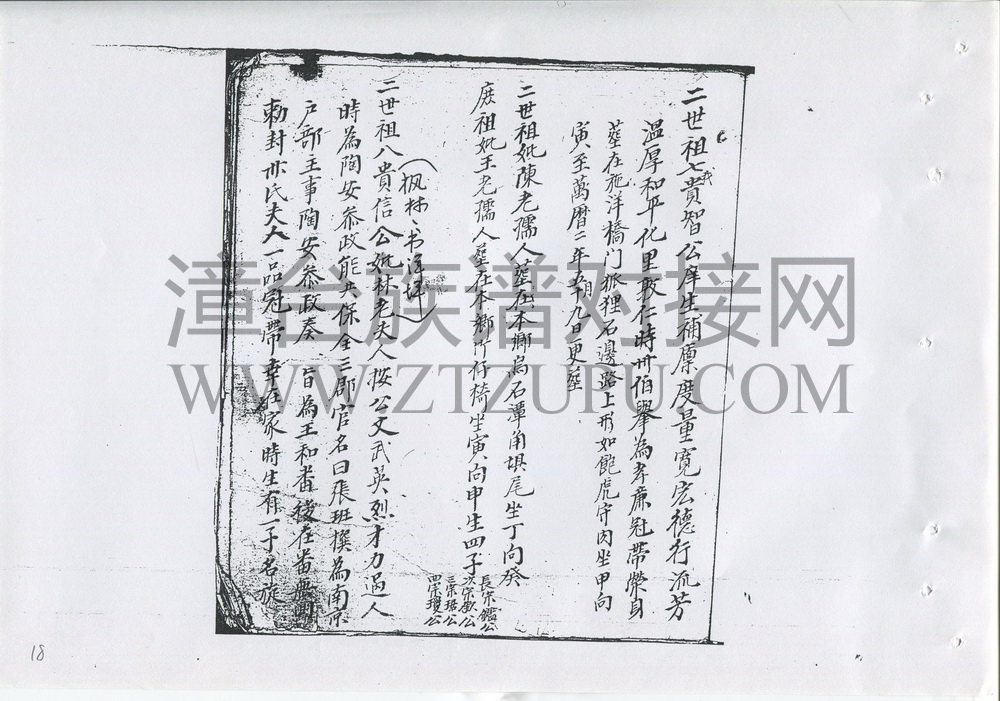 二世祖七貴智公庠生補廪度量寬宏德行流芳
温厚和平化里敦仁時卅伯舉為孝廉冠帶榮身
塟在施洋橋门狐狸石邊路上形如飽虎守肉坐甲向
寅至萬曆二年五月九日更塟
二世祖妣陳老孺人塟在本鄉烏石潭角垻尾坐丁向癸
庶祖妣王老孺人塟在本鄉竹仔椅坐寅向申生四子
長宗鑑公
次宗欽公
三宗珞公
四宗瓊公
(枫林、书洋坪)
二世祖八貴信公妣林老夫人按公文武英烈才力過人
時為陶安叅政能共保全三郡官名曰張班撰為南京
户部主事陶安叅政奏 旨為王和畨後在畨無
勅封 氏夫人一品冠帶幸在家時生有一子名旋
漳台族谱对接网
WWW.ZTZUPU.COM
18